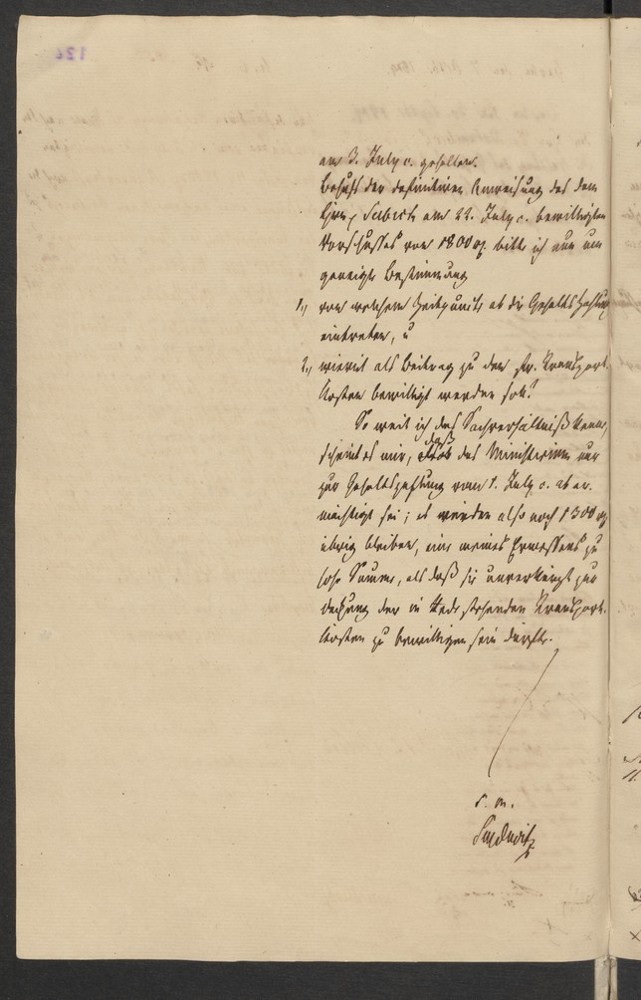 am 3. July c. gehalten.
Behufs der definitiven Anweisung des dem
Hrn. Subirch am 22. July c. bewilligten
Vorschusses von 1800 rf. bitte ich nun um
geneigte Bestimmung
1., von welchem Zeitpunkte ab die Gehaltszahlung
eintreten, u
2., wieviel als Beitrag zu den Transport-
Kosten bewilligt werden soll?
So weit ich das Sachverhältniß kenne,
scheint es mir, daß das Ministerium nur
zur Gehaltszahlung vom 1. July c. ab er-
mächtigt sei; es würden also noch 1300 rf
übrig bleiben, eine meines Ermessens zu
hohe Summe, als daß sie unverkürzt zur
Deckung der in Rede stehenden Transport-
kosten zu bewilligen sein dürfte.